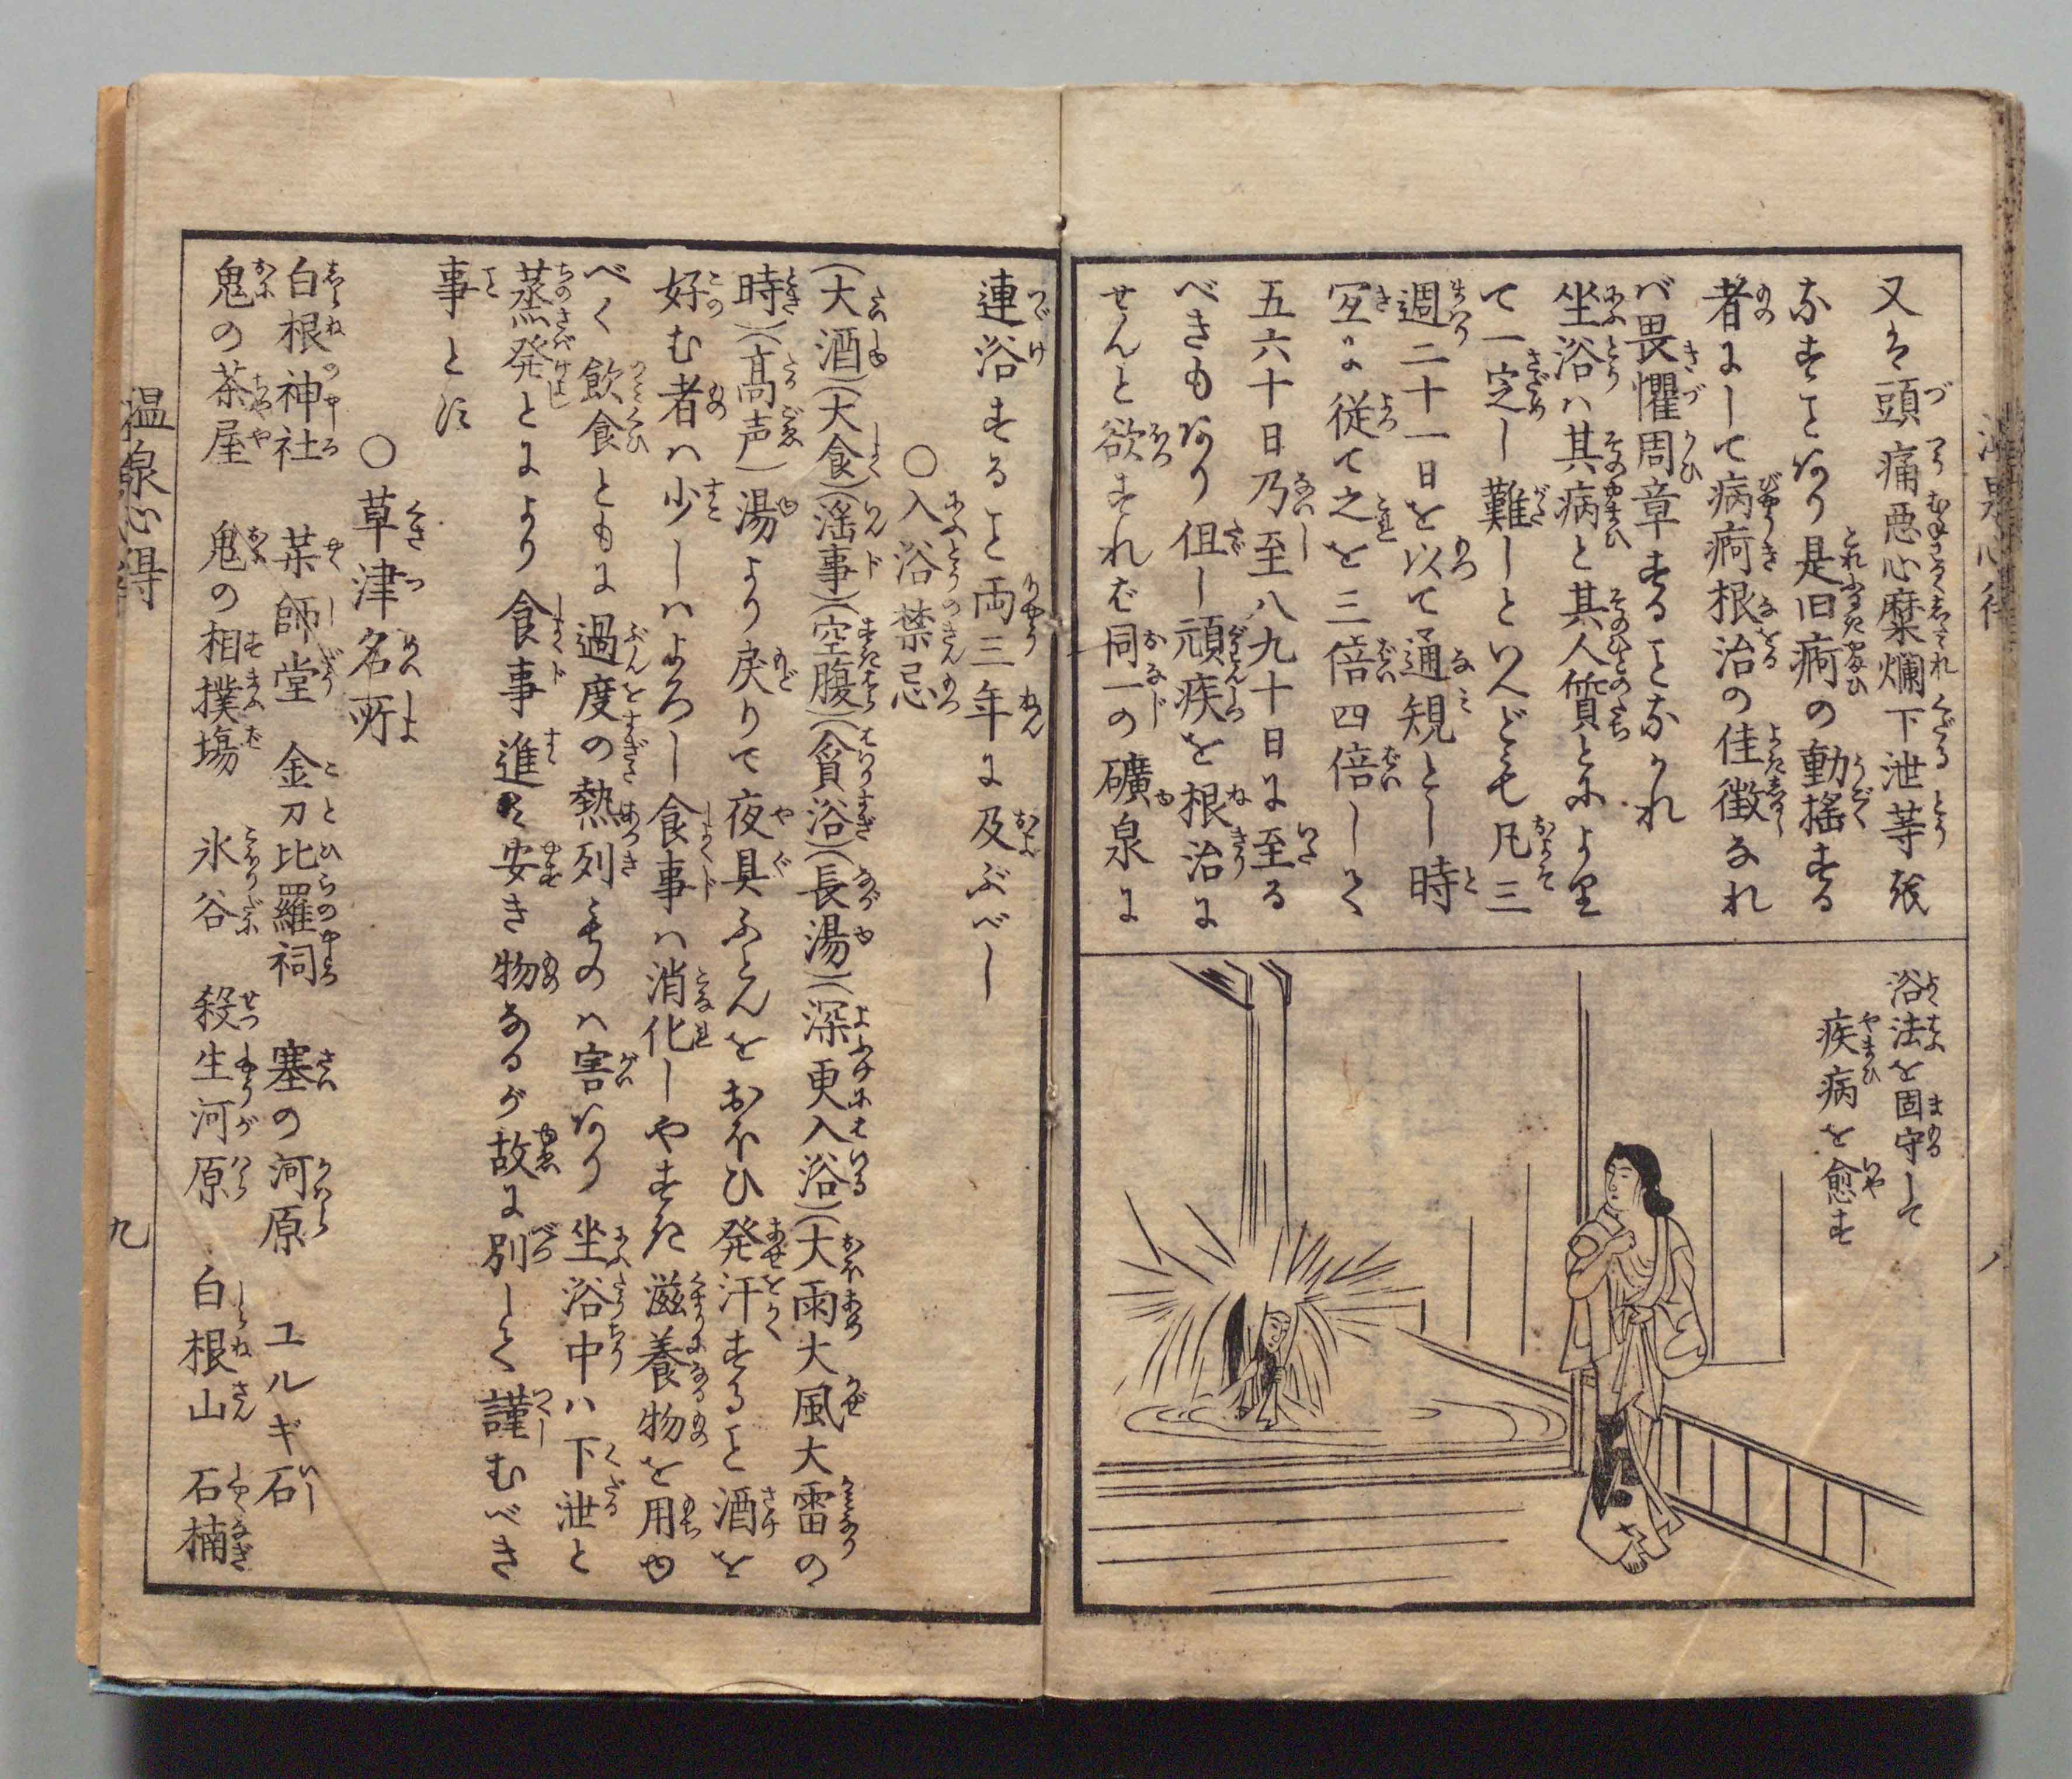 又は頭痛悪心糜爛下泄等を
なすことあり是旧痾の動揺する
者にして病痾根治の佳徴なれ
バ畏懼周章することなかれ
坐浴ハ其病と其人質とによリ
て一定し難しといへども凡三
週二十一日を以て通規とし時
宜に従て之を三倍四倍して
五六十日乃至八九十日に至る
べきもあり但し頑疾を根治に
せんと欲すれば同一の礦泉に
浴法を固守して
疾病を愈す
連浴すること両三年に及ぶべし
○入浴禁忌
(大酒)(大食)(滛事)(空腹)(貪浴)(長湯)(深更入浴)(大雨大風大雷の
時)(高声)湯より戻りて夜具ふとんをおほひ発汗すること酒を
好む者ハ少しハよろし食事ハ消化しやすき滋養物を用ゆ
べく飲食ともに過度の熱列きものハ害あり坐浴中ハ下泄と
蒸発とにより食事進み安き物なるが故に別して謹むべき
事とす
○草津名所
白根神社 薬師堂 金刀比羅祠 塞の河原 ユルギ石
鬼の茶屋 鬼の相撲場 氷谷 殺生河原 白根山 石楠
温泉心得
九